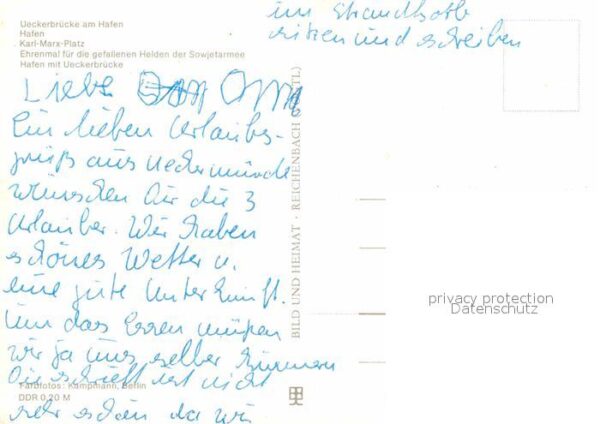 Ueckerbrücke am Hafen
Hafen
Karl-Marx-Platz
Ehrenmal für die gefallenen Helden der Sowjetarmee
Hafen mit Ueckerbrücke
Liebe Omi
Ein lieben Urlaubs-
gruß aus Uckermünde
wünschen Dir die 3
Urlauber. Wir haben
schönes Wetter u.
eine gute Unterkunft.
Um das Essen müßen
wir ja uns selber kümmern
Die schrift ist nicht
sehr schön da wir
im Strandkorb
sitzen und schreiben
BILD UND HEIMAT · REICHENBACH
Farbfotos: Kampmann, Berlin
DDR 0,20 M
privacy protection
Datenschutz